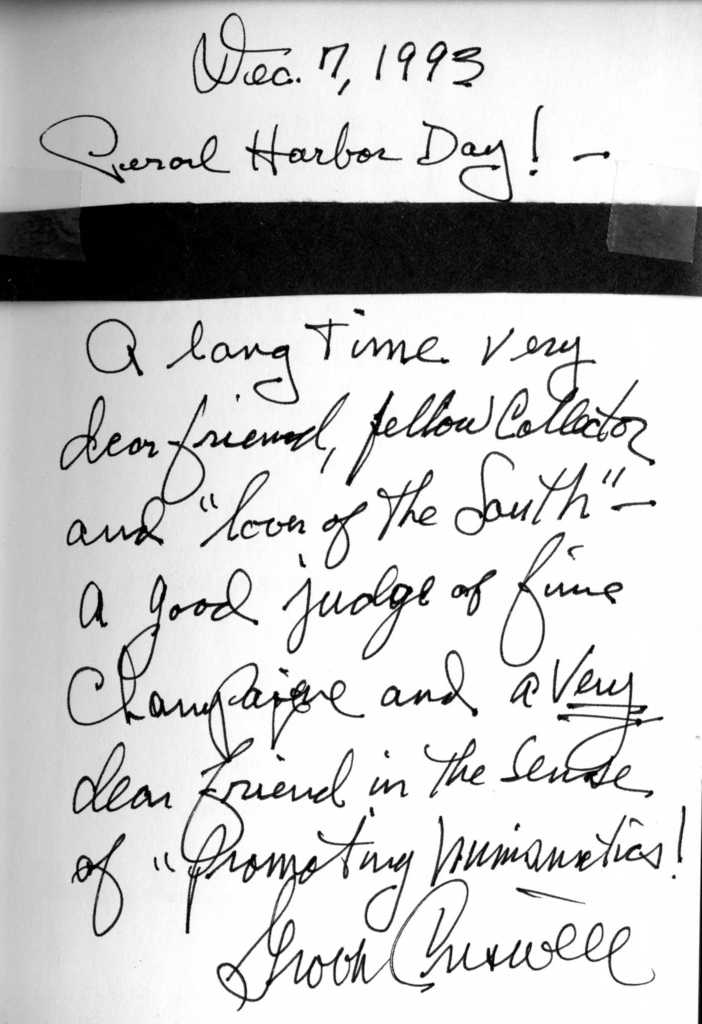 Dec. 7, 1993
Pearl Harbor Day! –
A long Time very
dear friend, fellow Collector
and "lover of the South" –
A good judge of fine
Champaigne and a Very
dear friend in the sense
of "promoting numismatics!
Grover Criswell